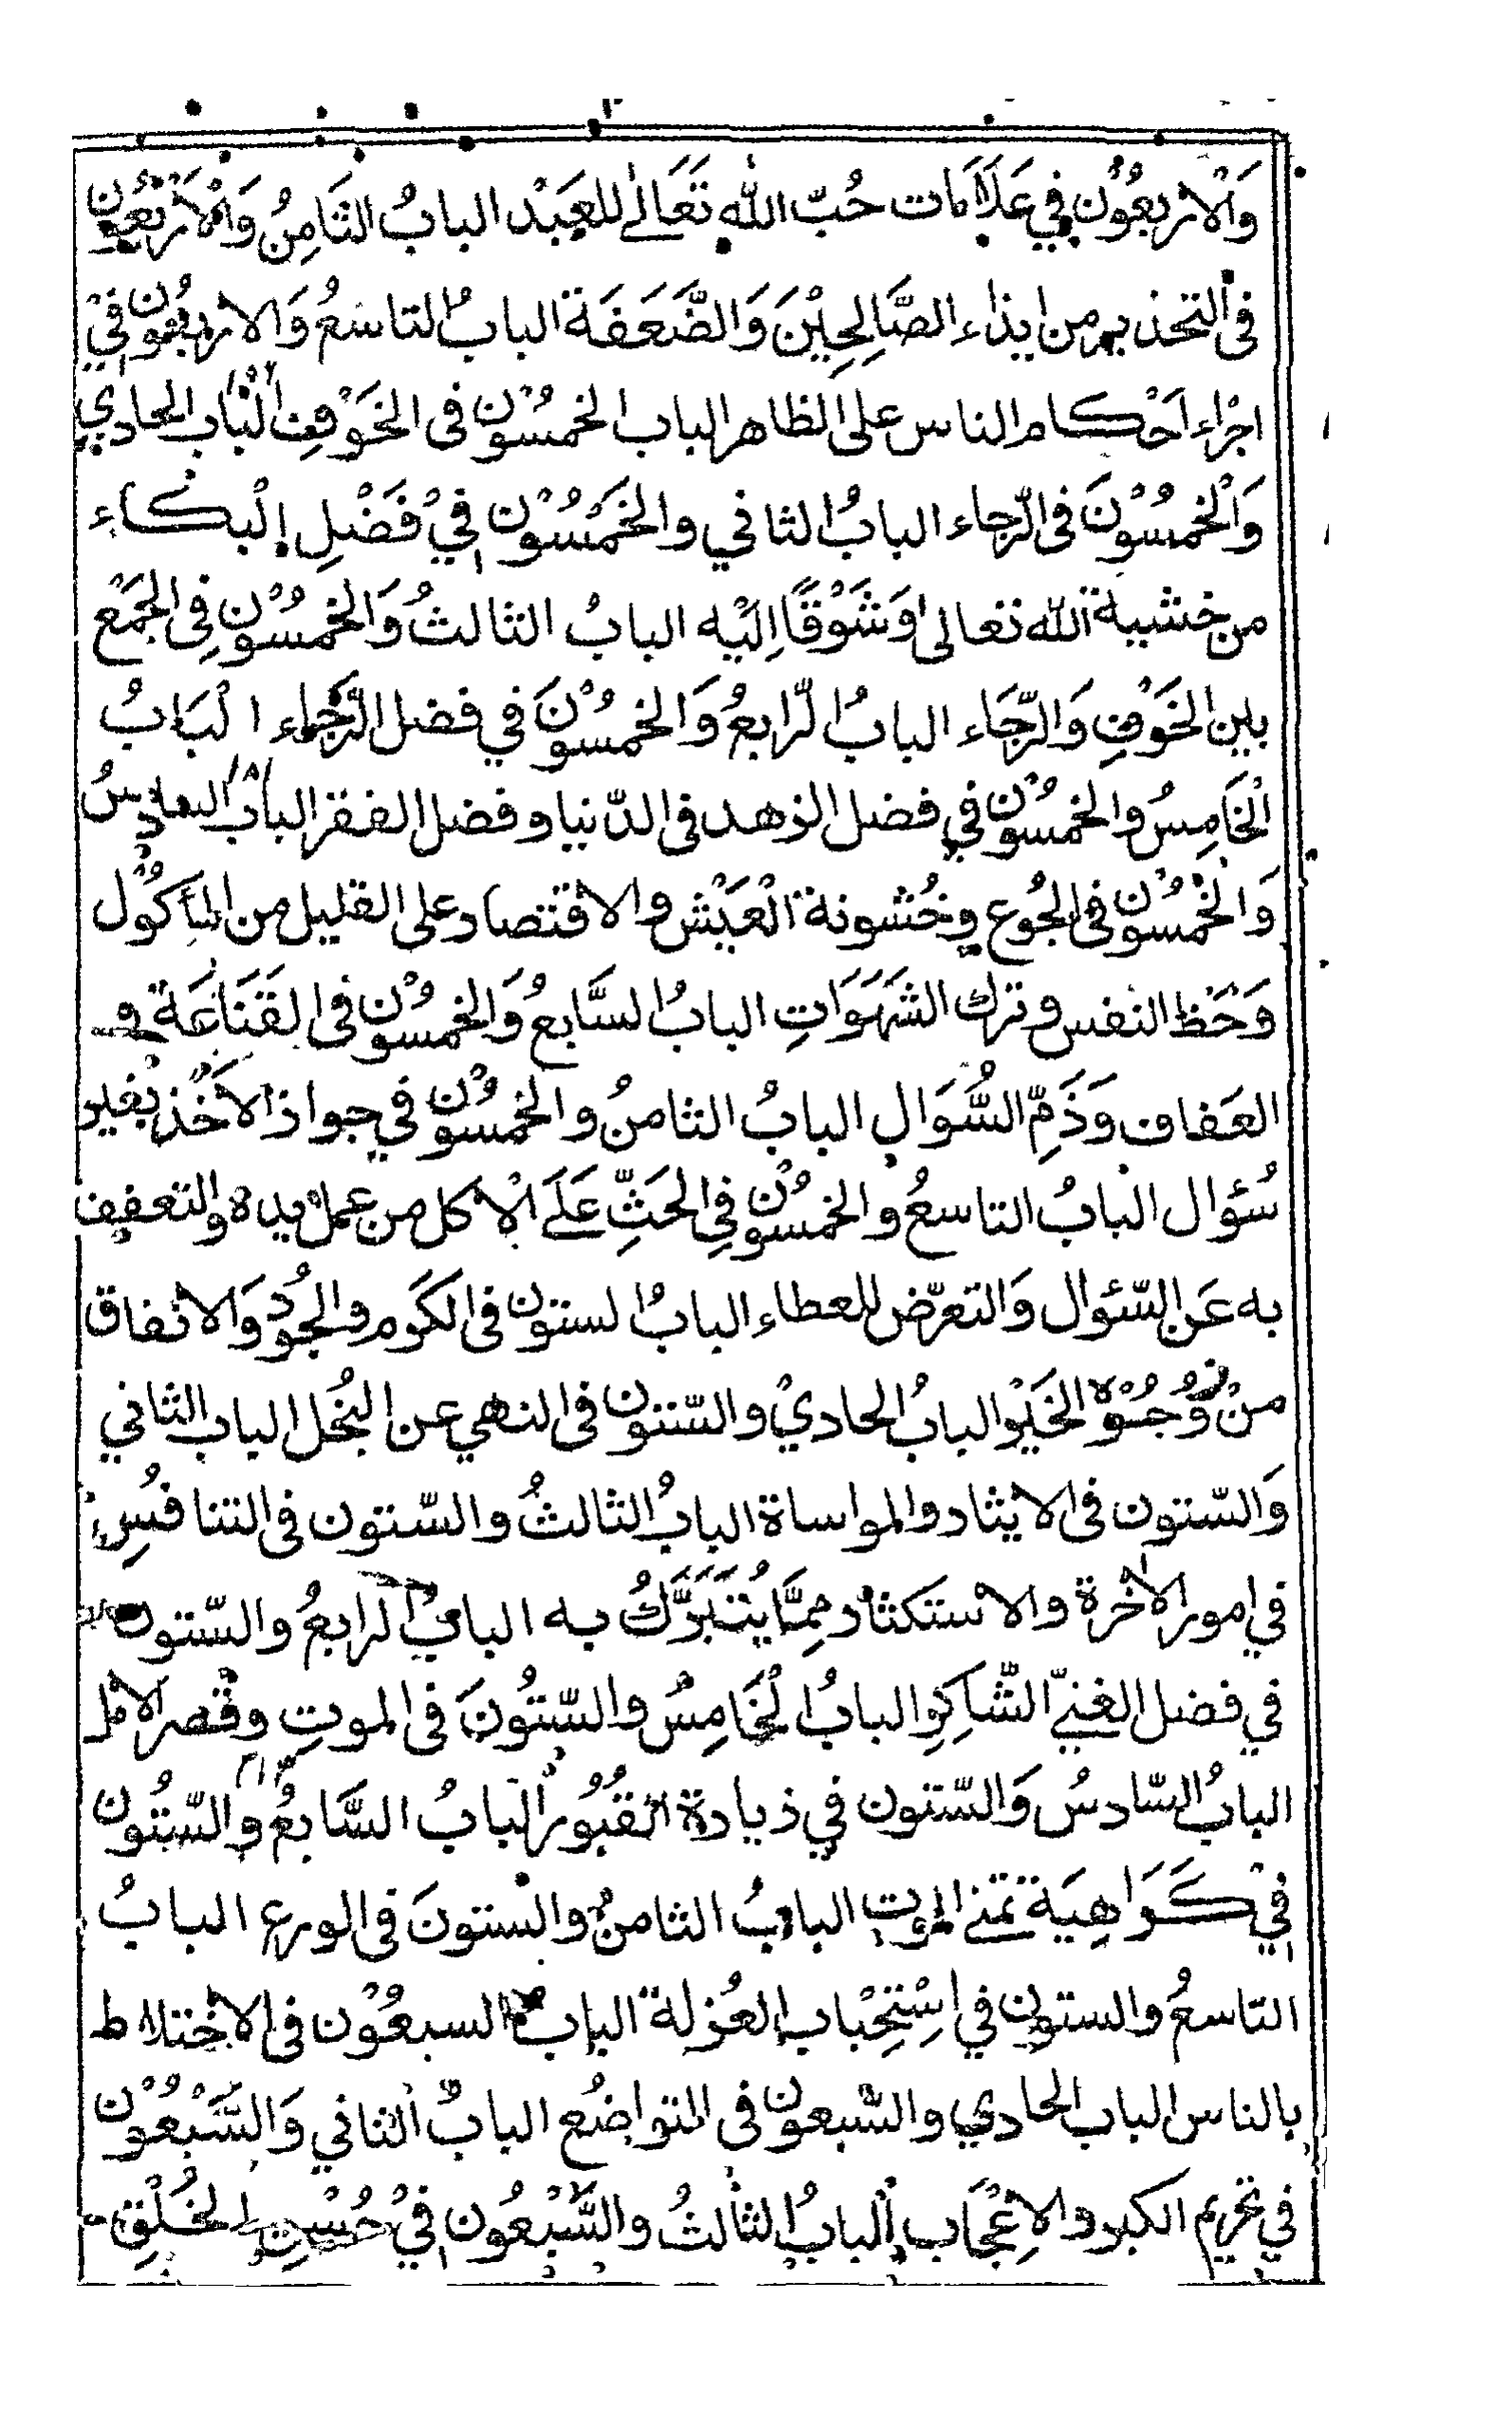 وَالْاربعُوْن في عَلَامَات حُبّ اللّٰه تَعَالٰى للعَبْد البابُ الثَامِنُ وَالْاَرْبعُوْن
فى التحذير من ايذاء الصَّالِحِيْنَ وَالضَّعَفَة البابُ التاسَعُ وَالاربعُون فيْ
اجْراء احْكام الناس على الظاهر الباب الخمسُوْن فى الخَوْفِ الْبَاب الحادي
وَالْخمسُوْنَ فى الرّجاء البابُ الثاني والخَمْسُوْن فِيْ فَضْلِ الْبكاء
من خشية اللّٰه تعالى وَشَوْقًا اِلَيْه البابُ الثالثُ وَالخمسُوْن فِى الجَمْع
بين الخَوْفِ وَالرّجَاء البابُ الرّابعُ وَالخمسُوْنَ في فضل الرَّجَاء الْبَابُ
الْخَامِسُ والخمسُوْن في فضل الزهد فى الدّنيا و فضل الفقر البابُ السادِسُ
وَالْخَمْسُوْن فى الجُوع وخُشونة الْعَيْش والاقتصاد على القليل من المأكُوْل
وَحَظ النفس وترك الشهَوَاتِ البابُ السَّابعُ وَالخمسُوْن فى القَنَاعَة و
العَفاف وَذَمِّ السُّوَال البابُ الثامنُ والخمسُوْن في جواز الاخْذ بْغير
سُؤال البابُ التاسعُ والخمسُوْن فِى الحَثِّ عَلَى الْاكل من عمل يده والتعفف
به عَن السّئوال وَالتعرّض للعطاء البابُ الستون فى الكَرَم والجُوْد وَالانفاق
منْ وُجُوْه الخَيْر البابُ الحاديْ والسّتون فى النهي عن البُخل الباب الثاني
وَالسّتون فى الايثار والمواساة البابُ الثالثُ والسّتون فى التنافُسِ
في امور الاخْرة والاستكثار مِمَّا يُتَبَرَّكُ به البابُ الرابعُ والسّتون
في فضل الغنيّ الشّاكِرِ البابُ الْخَامِسُ والسّتُونَ فى الموتِ وقصر الامل
البابُ السّادسُ وَالسّتون في زيارة القبُوْر البابُ السَّابعُ والسّتُون
فيْ كَرَاهِيَة تمنى الموت البابُ الثامنُ والستونَ فى الورع البابُ
التاسعُ والستون في اسْتِحْباب العُزلة البابُ السبعُوْن فى الاختلاط
بالناس الباب الحادي والسّبعون فى التواضُع البابُ الثاني وَالسَّبْعُوْن
في تحريم الكبر والاِعْجَاب البابُ الثالثُ والسَّبْعُون فيْ حُسْنِ الخُلْقِ